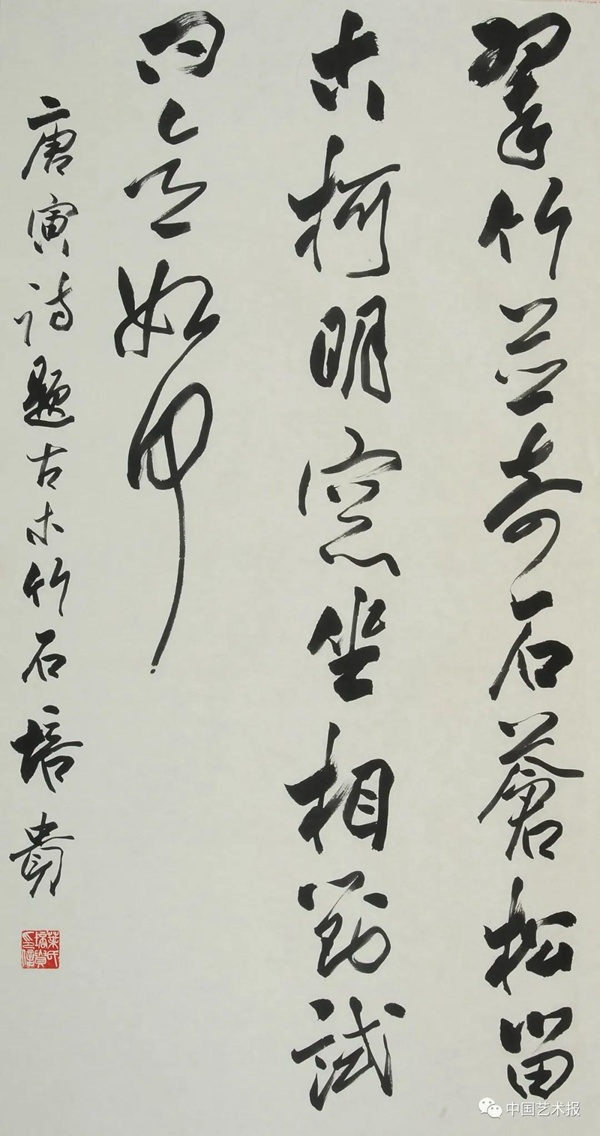 翠竹並奇石蒼松留
古柯明窓坐相對試
問意如何
唐寅詩題古木竹石 培貴
葉氏培貴印信
中国艺术报